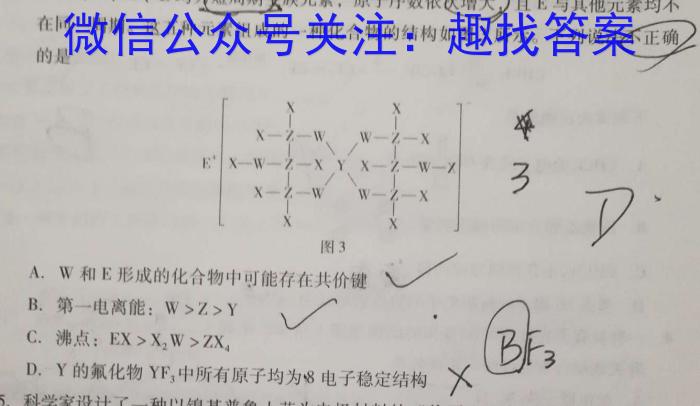 族元素，原子序数依次增大，且E与其他元素均不
在同
微信公众号关注：趣找答案
不正确
的是
X X
X—Z—W W—Z—X
E⁺ X—W—Z—X Y X—Z—W—X
X—Z—W W—Z—X
X X
图3
3
D
A. W和E形成的化合物中可能存在共价键
B. 第一电离能：W>Z>Y
C. 沸点：EX>X₂W>ZX₄
D. Y的氟化物YF₃中所有原子均为8电子稳定结构
BF₃
5. 科学家设计了一种以